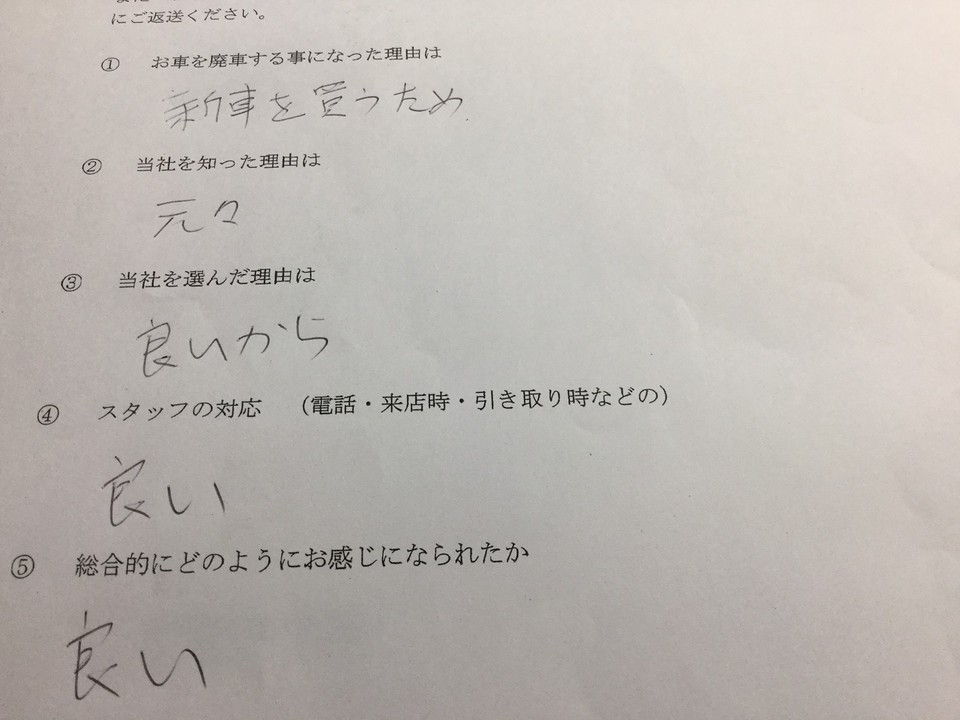 にご返送ください。
① お車を廃車する事になった理由は
新車を買うため
② 当社を知った理由は
元々
③ 当社を選んだ理由は
良いから
④ スタッフの対応 （電話・来店時・引き取り時などの）
良い
⑤ 総合的にどのようにお感じになられたか
良い